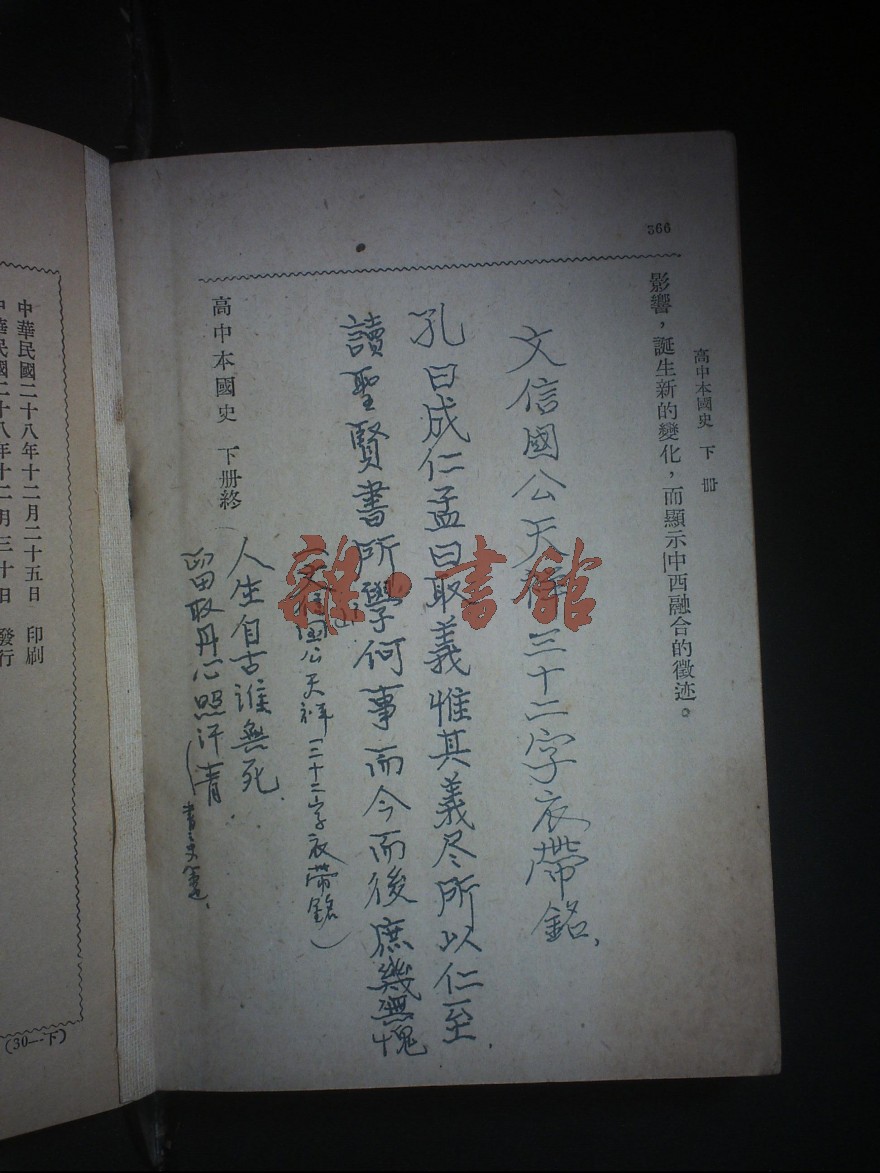 366
高中本國史 下冊
影響，誕生新的變化，而顯示中西融合的徵迹。
文信國公天祥三十二字衣帶銘、
孔曰成仁孟曰取義惟其義尽所以仁至
讀聖賢書所學何事而今而後庶幾無愧
（文信国公天祥三十二字衣帶銘）
高中本國史 下册終
人生自古谁無死
留取丹心照汗青
中華民國二十八年十二月二十五日 印刷
中華民國二十八年十二月三十日 發行
(30—下)
雜·書館